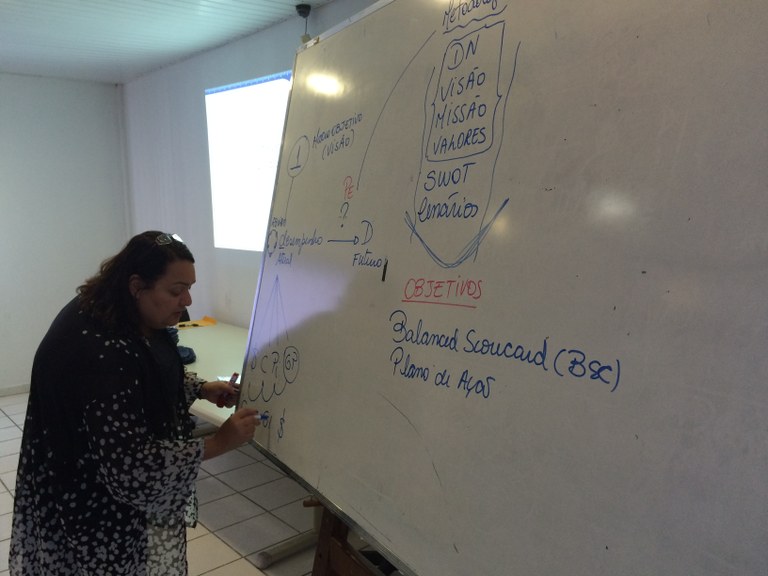 Metodolog
DN
VISÃO
MISSÃO
VALORES
SWOT
Cenários
OBJETIVOS
Balanced Scorecard (BSC)
Plano de Ação
1
OBJETIVO
(VISÃO)
PE
?
Desempenho → D
Atual
Futuro
$